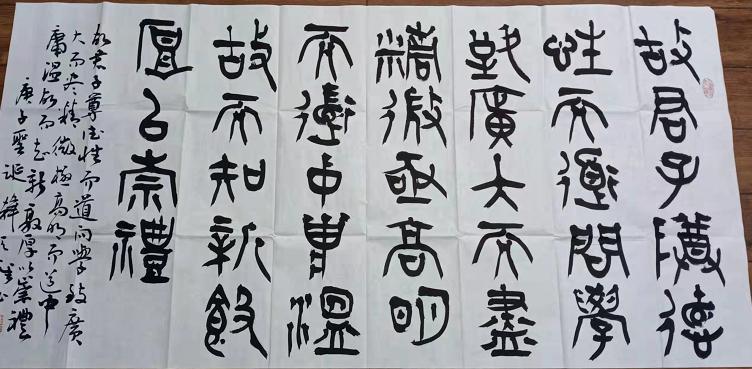 故君子尊德
性而道問學
致廣大而盡
精微極高明
而道中庸溫
故而知新敦
厚以崇禮
故君子尊德性而道问学致廣
大而尽精微極高明而道中
庸温故而知新敦厚以崇禮
庚子聖誕